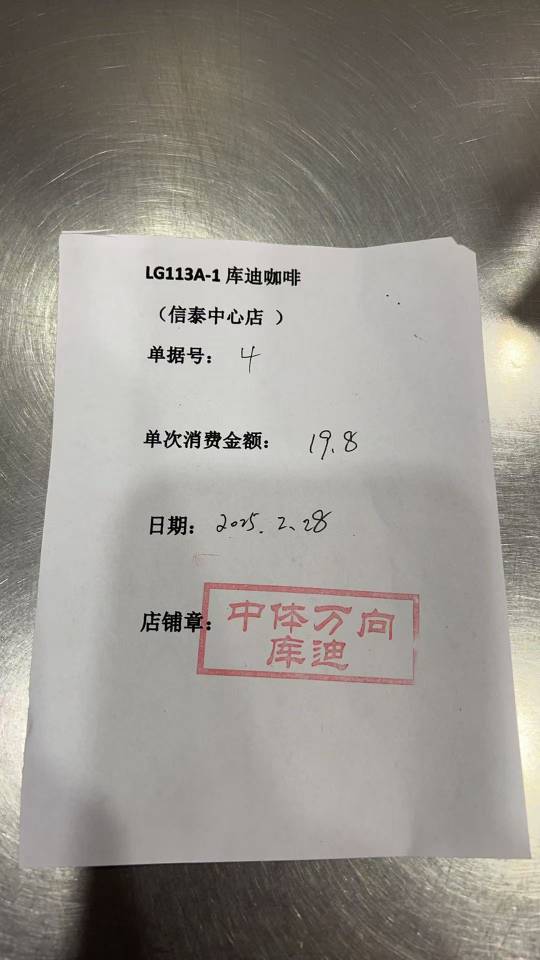 LG113A-1 库迪咖啡
（信泰中心店 ）
单据号： 4
单次消费金额： 19.8
日期： 2025.2.28
店铺章：
中体万向
库迪